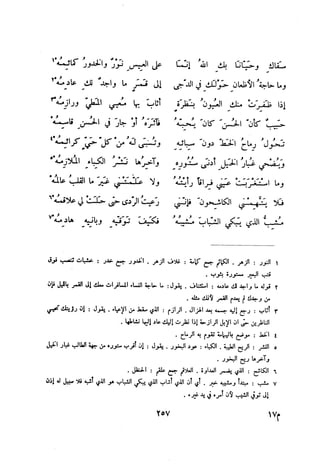 سقاك وحيانا بك الله إنما على العيس نور والخدور كمائمه ١
وما حاجة الأظعان حولك في الدجى إلى قمر ما واجد لك عادمه ٢
إذا ظفرت منك العيون بنظرة أثاب بها معيي المطي ورازمه ٣
حبيب كأن الحسن كان يحبه فآثره أو جار في الحسن قاسمه
تحول رماح الخط دون سبائه وتسبى له من كل حي كرائمه ٤
ويضحي غبار الخيل أدنى ستوره وآخرها نشر الكباء الملازمه ٥
وما استغربت عيني فراقا رأيته ولا علمتني غير ما القلب عالمه
فلا يتهمني الكاشحون فإنني رعيت الردى حتى حلت لي علاقمه ٦
مشب الذي يبكي الشباب مشيبه فكيف توقيه وبانيه هادمه ٧
١ النور : الزهر . الكمائم جمع كمامة : غلاف الزهر . الخدور جمع خدر : خشبات تنصب فوق
قتب البعير مستورة بثوب .
٢ قوله ما واجد لك عادمه : استئناف . يقول : ما حاجة النساء المسافرات معك إلى القمر بالليل فإن
من وجدك لم يعدم القمر لأنك مثله .
٣ أثاب : رجع إليه جسمه بعد الهزال . الرازم : الذي سقط من الإعياء . يقول : إن رؤيتك تحيي
الناظرين حتى أن الإبل الرازحة إذا نظرت إليك عاد إليها نشاطها .
٤ الخط : موضع باليمامة تقوم به الرماح .
٥ النشر : الريح الطيبة . الكباء : عود البخور . يقول : إن أقرب ستوره من جهة الطالب غبار الخيل
وآخرها ريح البخور .
٦ الكاشح : الذي يضمر العداوة . العلاقم جمع علقم : الحنظل .
٧ مشب : مبتدأ ومشيبه خبر . أي أن الذي أشاب الذي يبكي الشباب هو الذي أشبه فلا سبيل له إذن
إلى توقي الشيب لأن أمره في يد غيره .
١٧م ٢٥٧